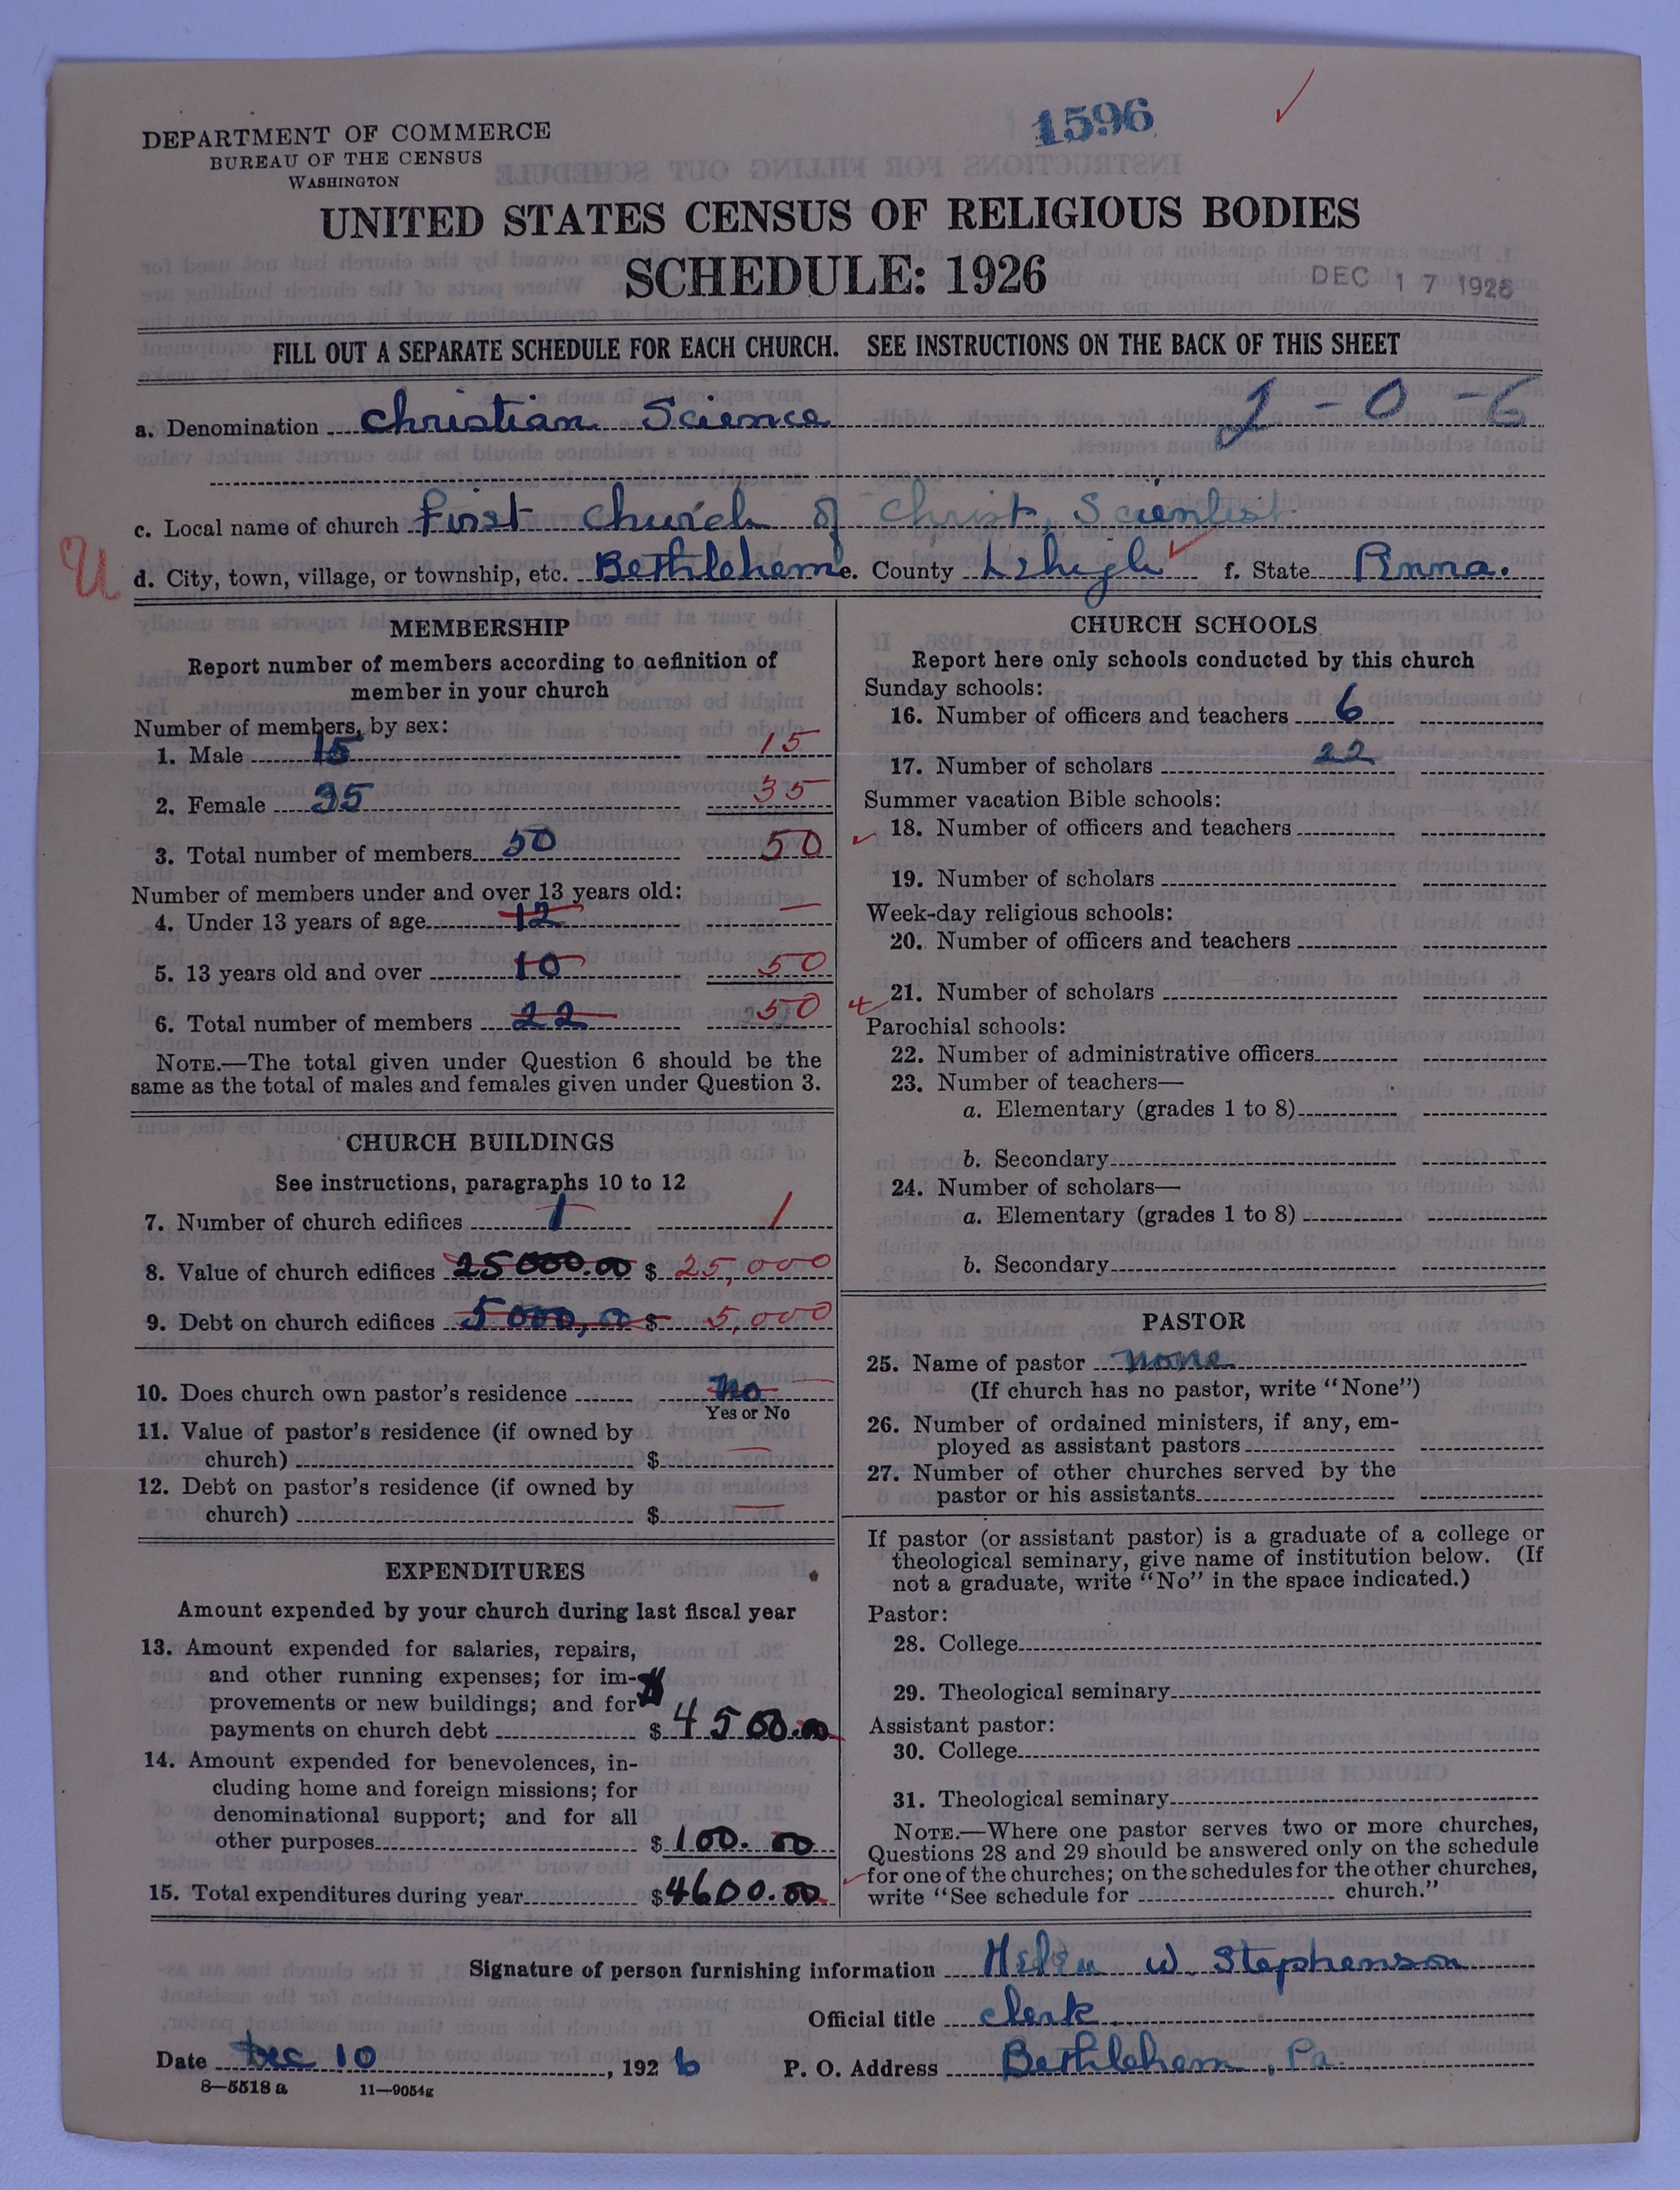 1596
DEPARTMENT OF COMMERCE
BUREAU OF THE CENSUS
WASHINGTON
UNITED STATES CENSUS OF RELIGIOUS BODIES
SCHEDULE: 1926
DEC 17 1926
FILL OUT A SEPARATE SCHEDULE FOR EACH CHURCH. SEE INSTRUCTIONS ON THE BACK OF THIS SHEET
a. Denomination Christian Science 2-0-6
c. Local name of church First Church of Christ, Scientist
U
d. City, town, village, or township, etc. Bethlehem e. County Lehigh f. State Penna.
MEMBERSHIP
Report number of members according to definition of
member in your church
Number of members, by sex:
1. Male 15 15
2. Female 35 35
3. Total number of members 50 50
Number of members under and over 13 years old:
4. Under 13 years of age 12 —
5. 13 years old and over 10 50
6. Total number of members 22 50
NOTE.—The total given under Question 6 should be the
same as the total of males and females given under Question 3.
CHURCH BUILDINGS
See instructions, paragraphs 10 to 12
7. Number of church edifices 1 1
8. Value of church edifices 25000.00 $ 25,000
9. Debt on church edifices 5000,00 $ 5,000
10. Does church own pastor's residence No
Yes or No
11. Value of pastor's residence (if owned by
church) $ —
12. Debt on pastor's residence (if owned by
church) $ —
EXPENDITURES
Amount expended by your church during last fiscal year
13. Amount expended for salaries, repairs,
and other running expenses; for im-
provements or new buildings; and for
payments on church debt $ 4500.00
14. Amount expended for benevolences, in-
cluding home and foreign missions; for
denominational support; and for all
other purposes $ 100.00
15. Total expenditures during year $ 4600.00
CHURCH SCHOOLS
Report here only schools conducted by this church
Sunday schools:
16. Number of officers and teachers 6
17. Number of scholars 22
Summer vacation Bible schools:
18. Number of officers and teachers
19. Number of scholars
Week-day religious schools:
20. Number of officers and teachers
21. Number of scholars
Parochial schools:
22. Number of administrative officers
23. Number of teachers—
a. Elementary (grades 1 to 8)
b. Secondary
24. Number of scholars—
a. Elementary (grades 1 to 8)
b. Secondary
PASTOR
25. Name of pastor none
(If church has no pastor, write "None")
26. Number of ordained ministers, if any, em-
ployed as assistant pastors
27. Number of other churches served by the
pastor or his assistants
If pastor (or assistant pastor) is a graduate of a college or
theological seminary, give name of institution below. (If
not a graduate, write "No" in the space indicated.)
Pastor:
28. College
29. Theological seminary
Assistant pastor:
30. College
31. Theological seminary
NOTE.—Where one pastor serves two or more churches,
Questions 28 and 29 should be answered only on the schedule
for one of the churches; on the schedules for the other churches,
write "See schedule for church."
Signature of person furnishing information Helen W. Stephenson
Official title Clerk
Date Dec 10, 1926 P. O. Address Bethlehem, Pa.
8—5518 a 11—9054g